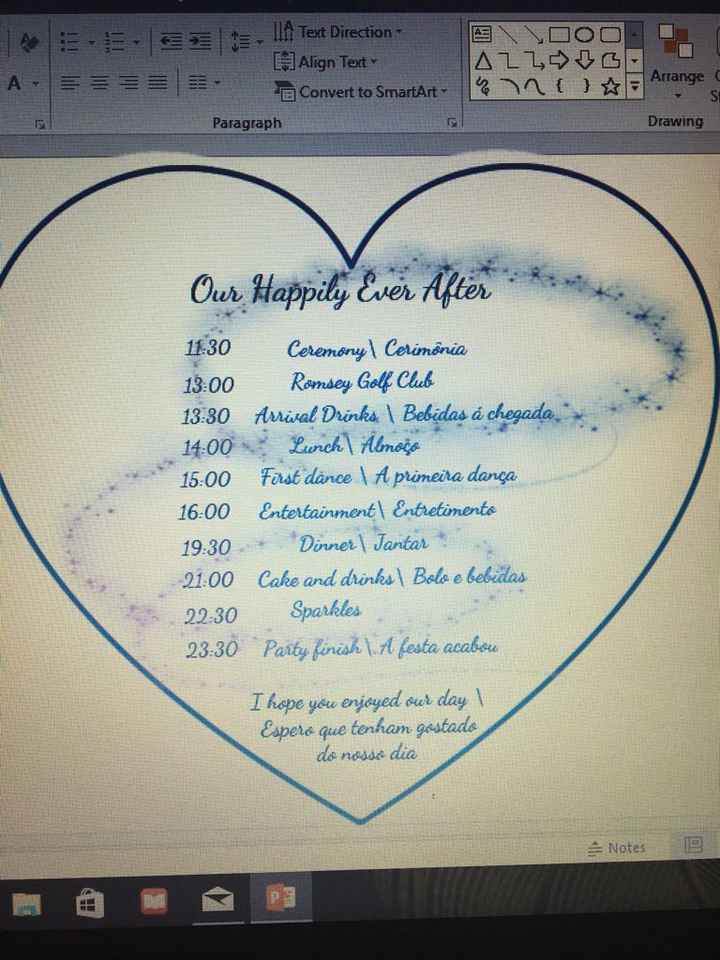 Text Direction
A
Align Text
Convert to SmartArt
Arrange
Paragraph
Drawing
Our Happily Ever After
11:30 Ceremony \ Cerimônia
13:00 Romsey Golf Club
13:30 Arrival Drinks \ Bebidas á chegada
14:00 Lunch \ Almoço
15:00 First dance \ A primeira dança
16:00 Entertainment \ Entretimento
19:30 Dinner \ Jantar
21:00 Cake and drinks \ Bolo e bebidas
22:30 Sparkles
23:30 Party finish \ A festa acabou
I hope you enjoyed our day \
Espero que tenham gostado
do nosso dia
Notes